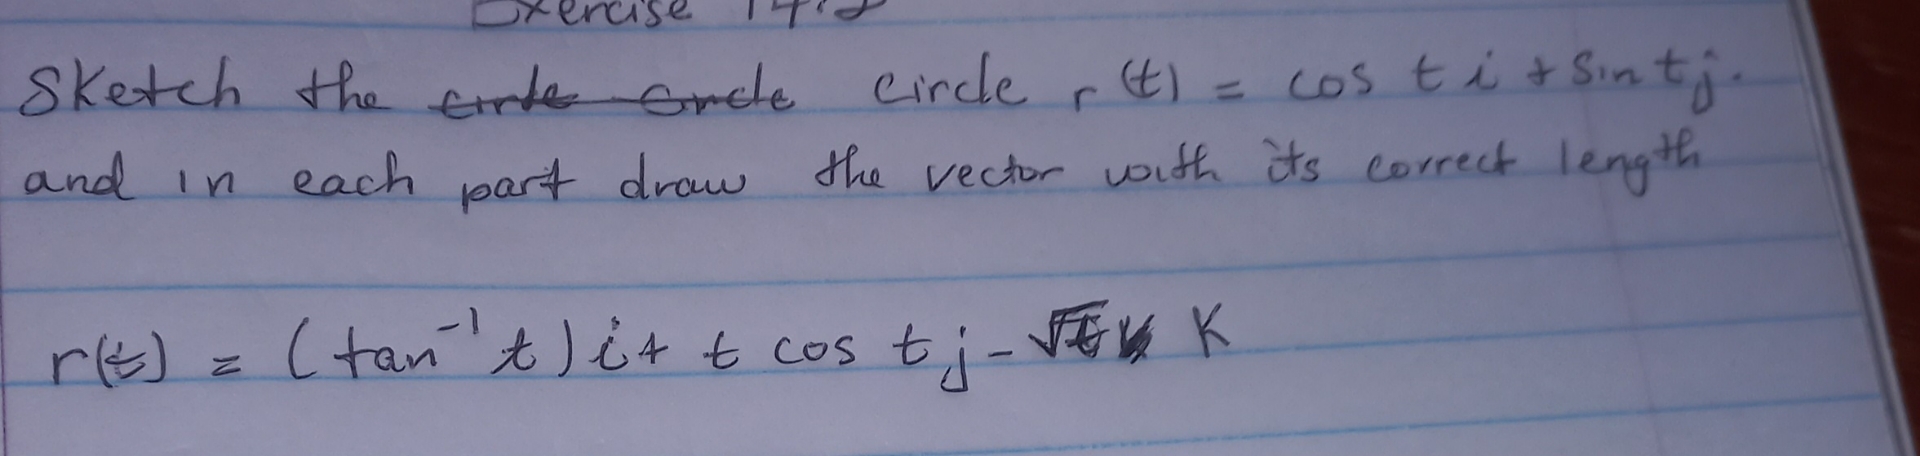 Exercise 14.2
Sketch the circle r(t) = cos t i + sin t j.
and in each part draw the vector with its correct length
r(t) = (tan⁻¹ t) i + t cos t j - √t K